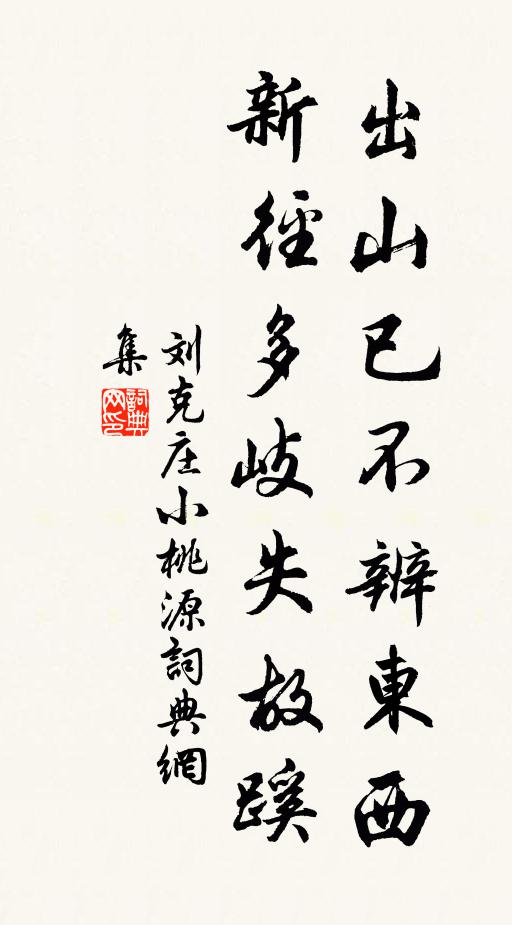 出山已不辨東西
新徑多歧失故蹊
刘克庄小桃源詞典網
集
詞典网印